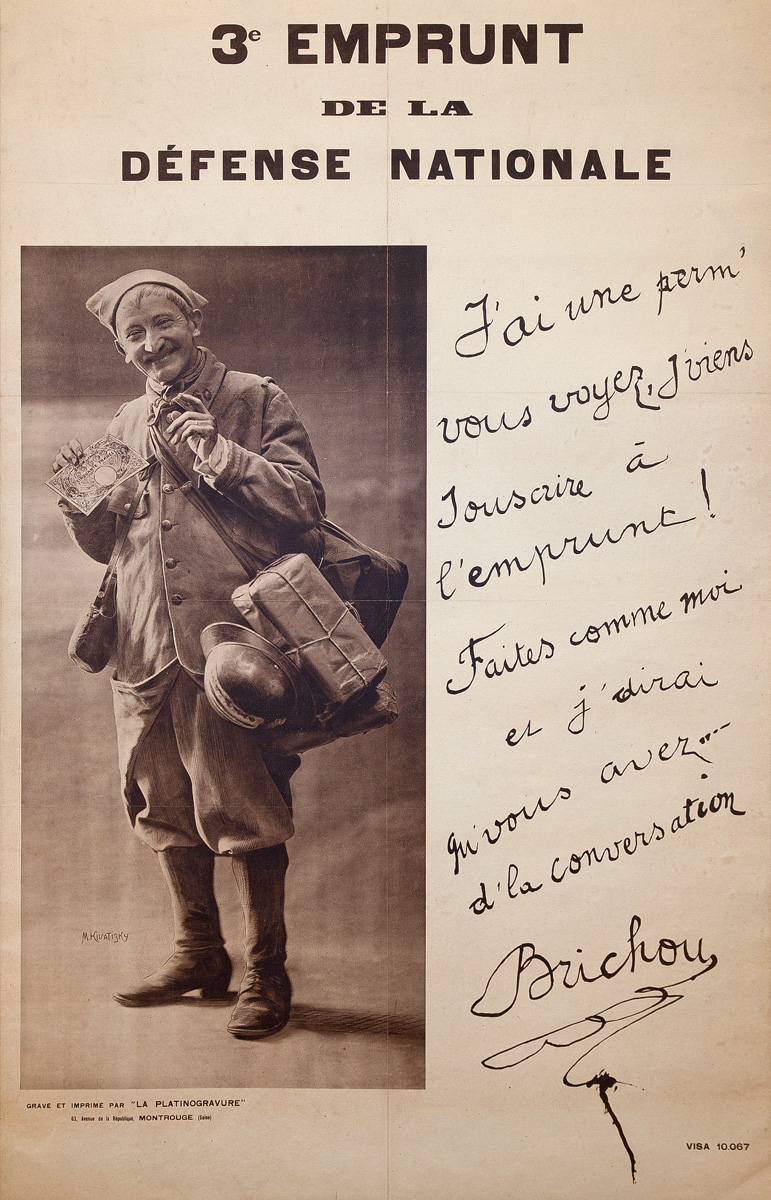 3e EMPRUNT
DE LA
DÉFENSE NATIONALE
J'ai une perm'
vous voyez, j'viens
souscrire à
l'emprunt !
Faites comme moi
et j'dirai
qu'vous avez...
d'la conversation
Brichou
M. Kivatizky
GRAVÉ ET IMPRIMÉ PAR "LA PLATINOGRAVURE"
63, Avenue de la République, MONTROUGE (Seine)
VISA 10.067